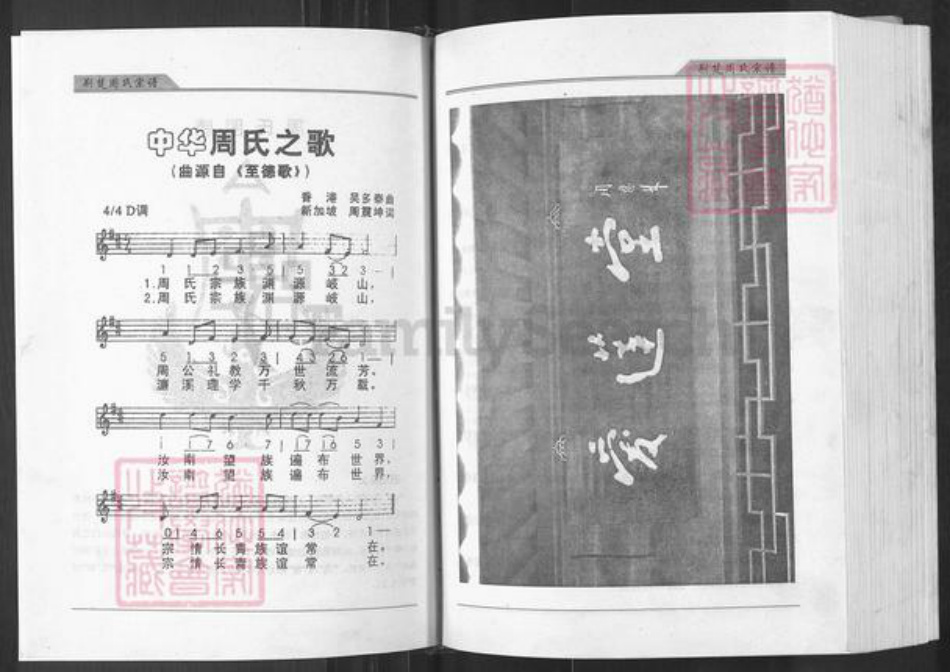 荆楚周氏宗谱
中华周氏之歌
(曲源自《至德歌》)
香港 吴多泰曲
4/4 D调 新加坡 周震坤词
1 1 2 3 5 | 5 3 2 3 - |
1.周氏宗族渊源岐山,
2.周氏宗族渊源岐山,
5 1 3 2 3 | 4 3 2 6 1 — |
周公礼教万世流芳、
濂溪理学千秋万载。
i i 7 6 7 | i 7 i 6 5 3 |
汝南望族遍布世界,
汝南望族遍布世界,
0 4 6 5 5 4 | 3 2 1 —
宗情长青族谊常在。
宗情长青族谊常在。
荆楚周氏宗谱
爱莲堂
FamilySearch